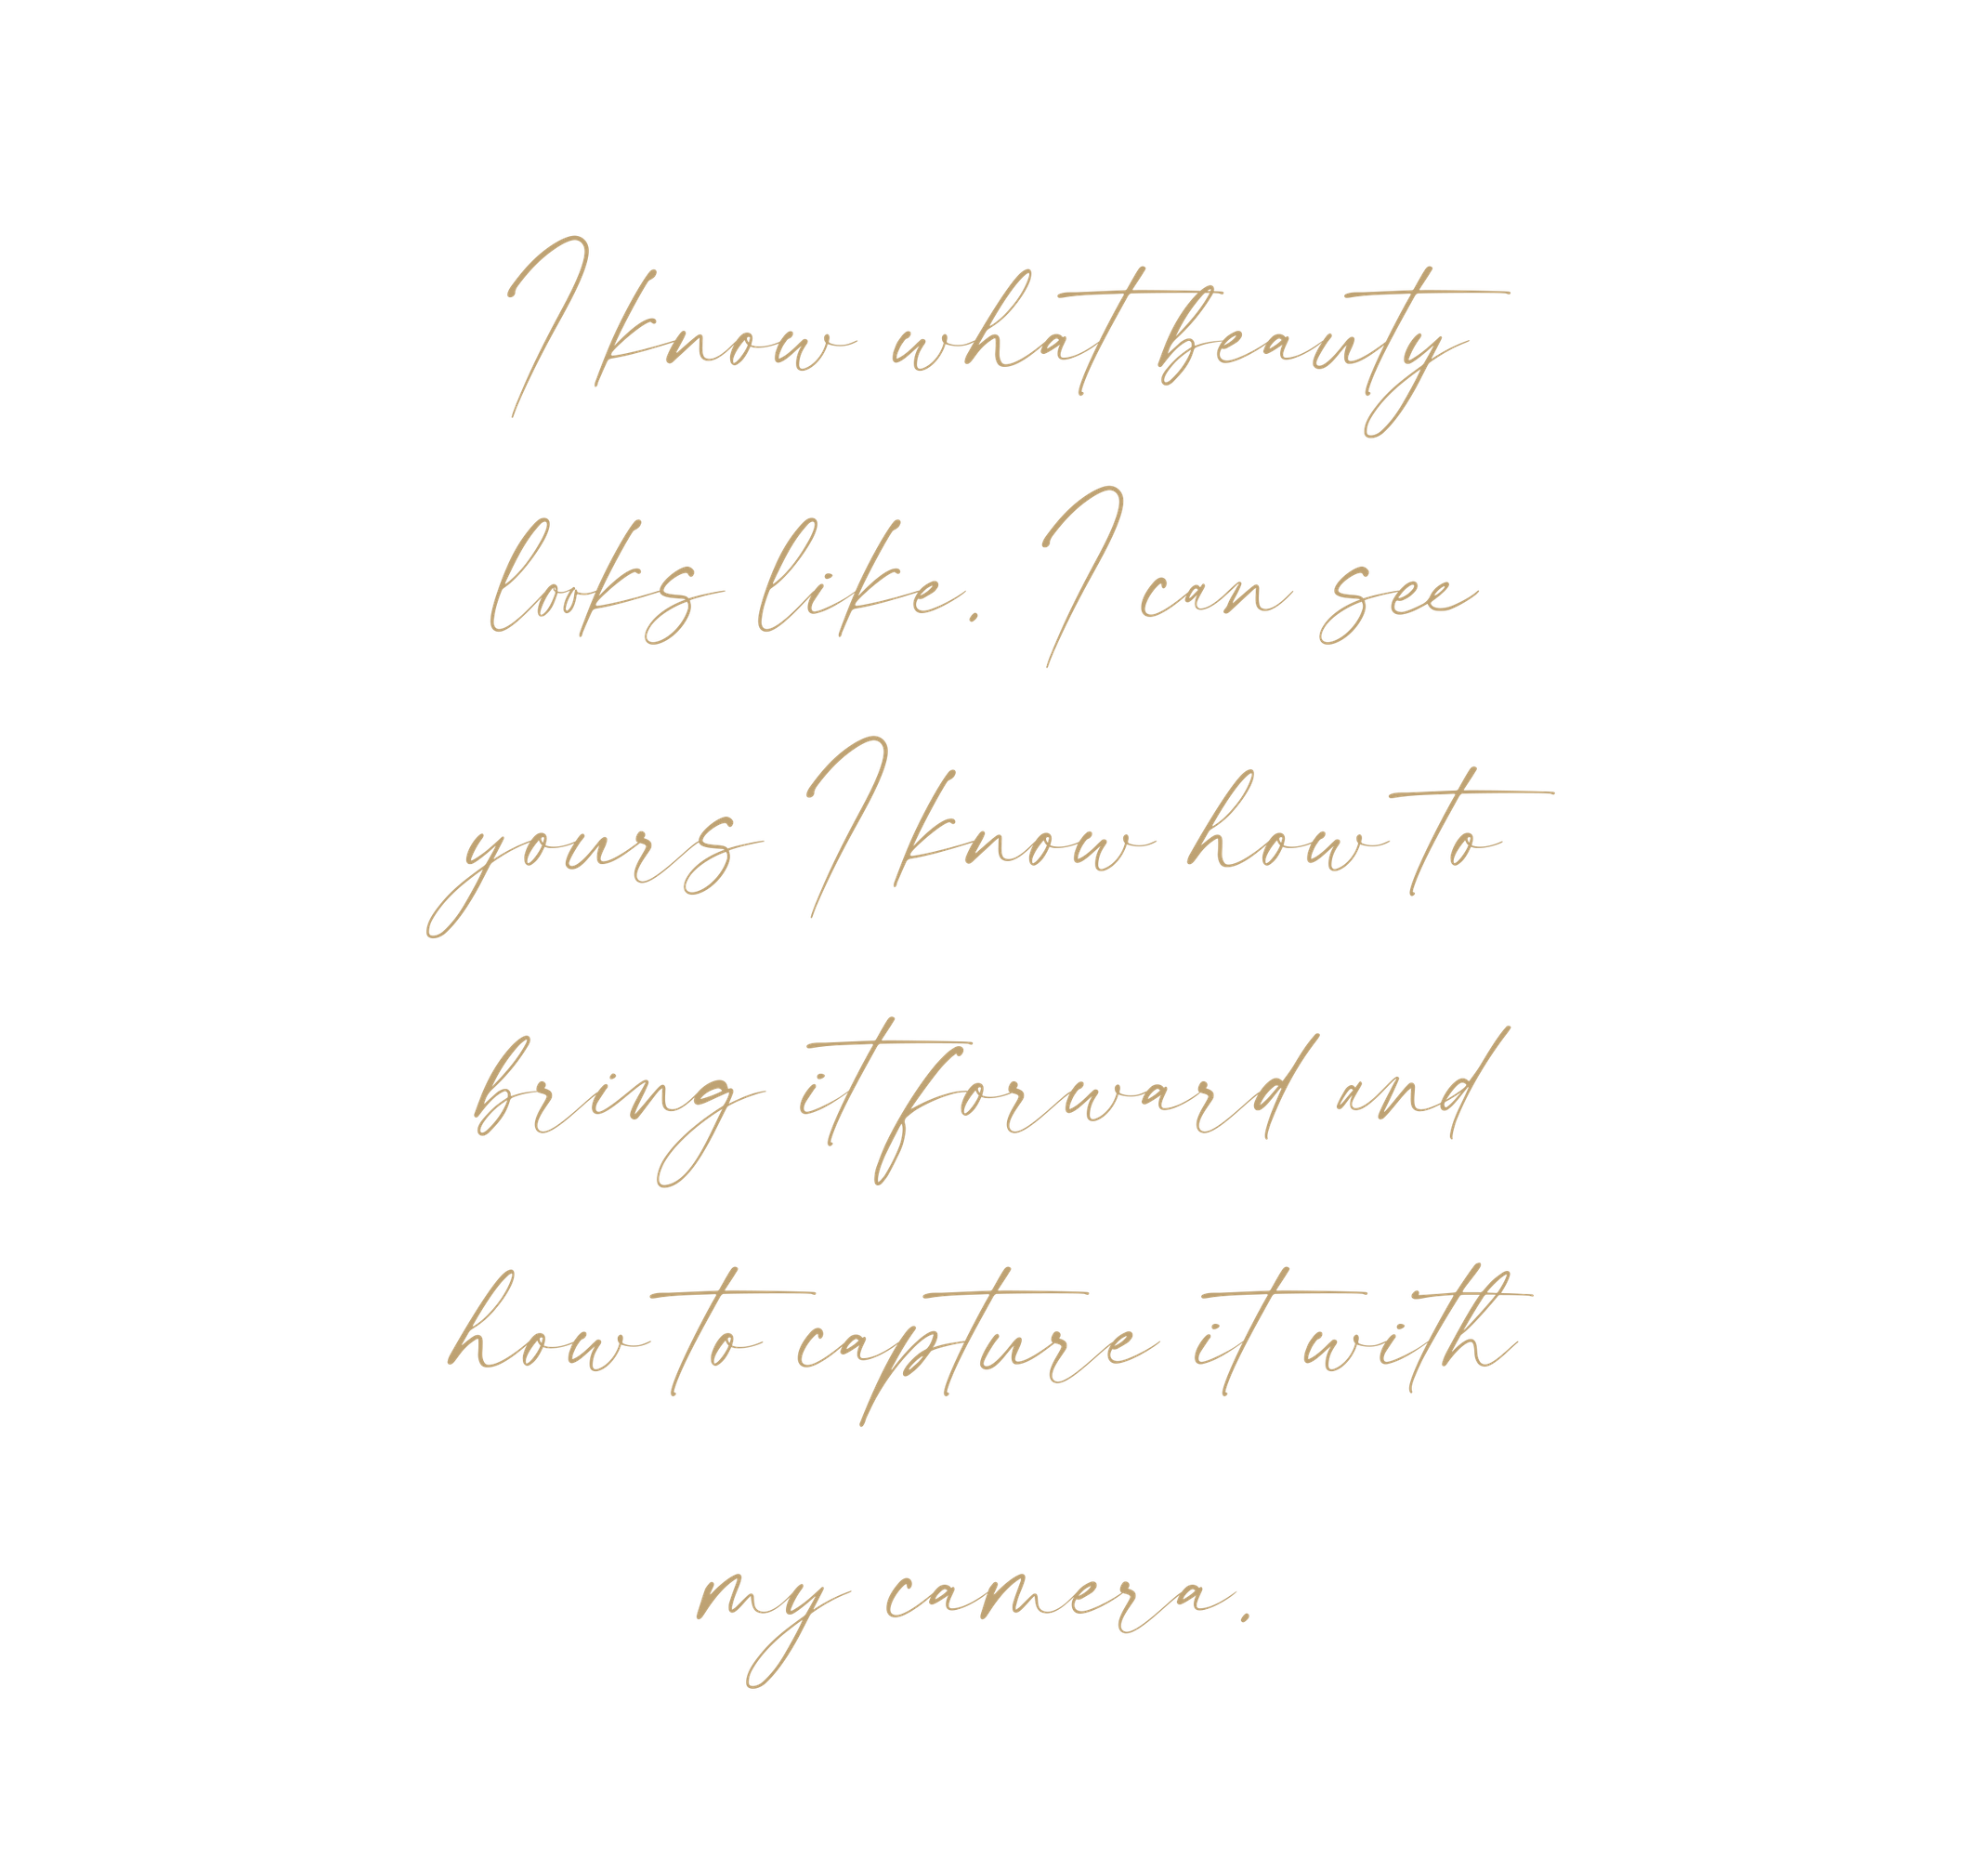 I know what beauty
looks like. I can see
yours I know how to
bring it forward and
how to capture it with
my camera.